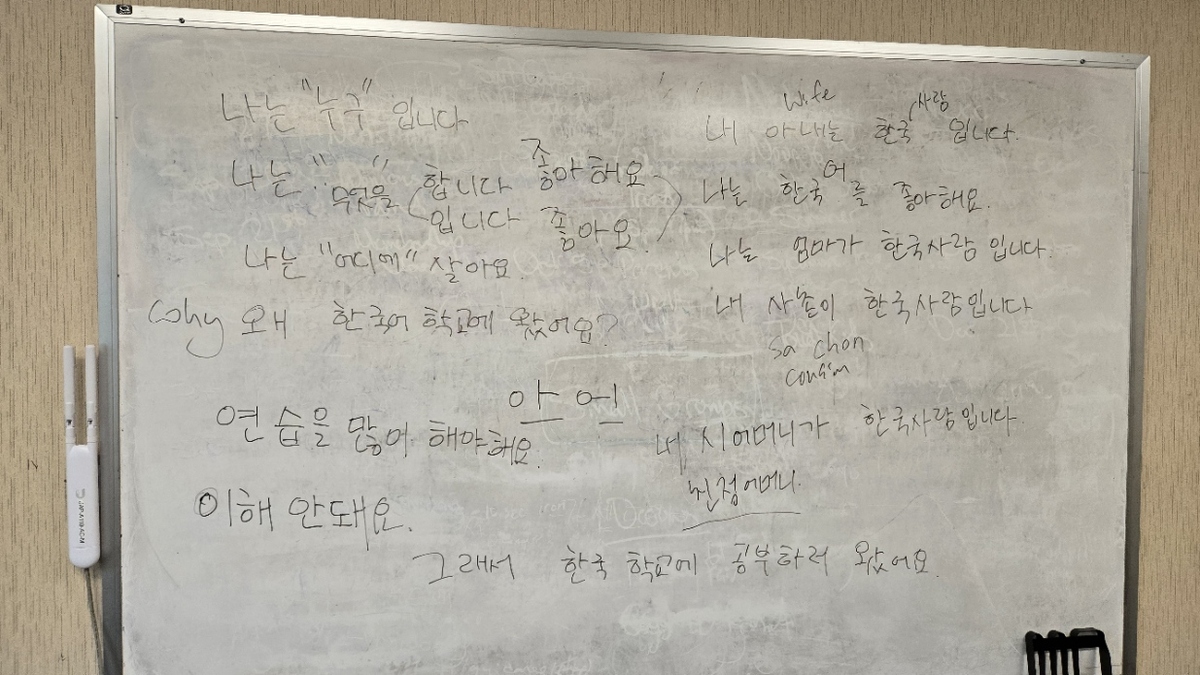 나는 "누구" 입니다
나는 "무엇을" 합니다 좋아해요
입니다 좋아요.
나는 "어디에" 살아요.
Why 왜 한국어 학교에 왔어요?
아 어
연습을 많이 해야해요.
이해 안돼요.
wife 사람
내 아내는 한국 입니다.
나는 한국어를 좋아해요.
나는 엄마가 한국사람 입니다.
내 사촌이 한국사람입니다
sa chon
cousin
내 시어머니가 한국사람입니다.
친정어머니.
그래서 한국 학교에 공부하러 왔어요.